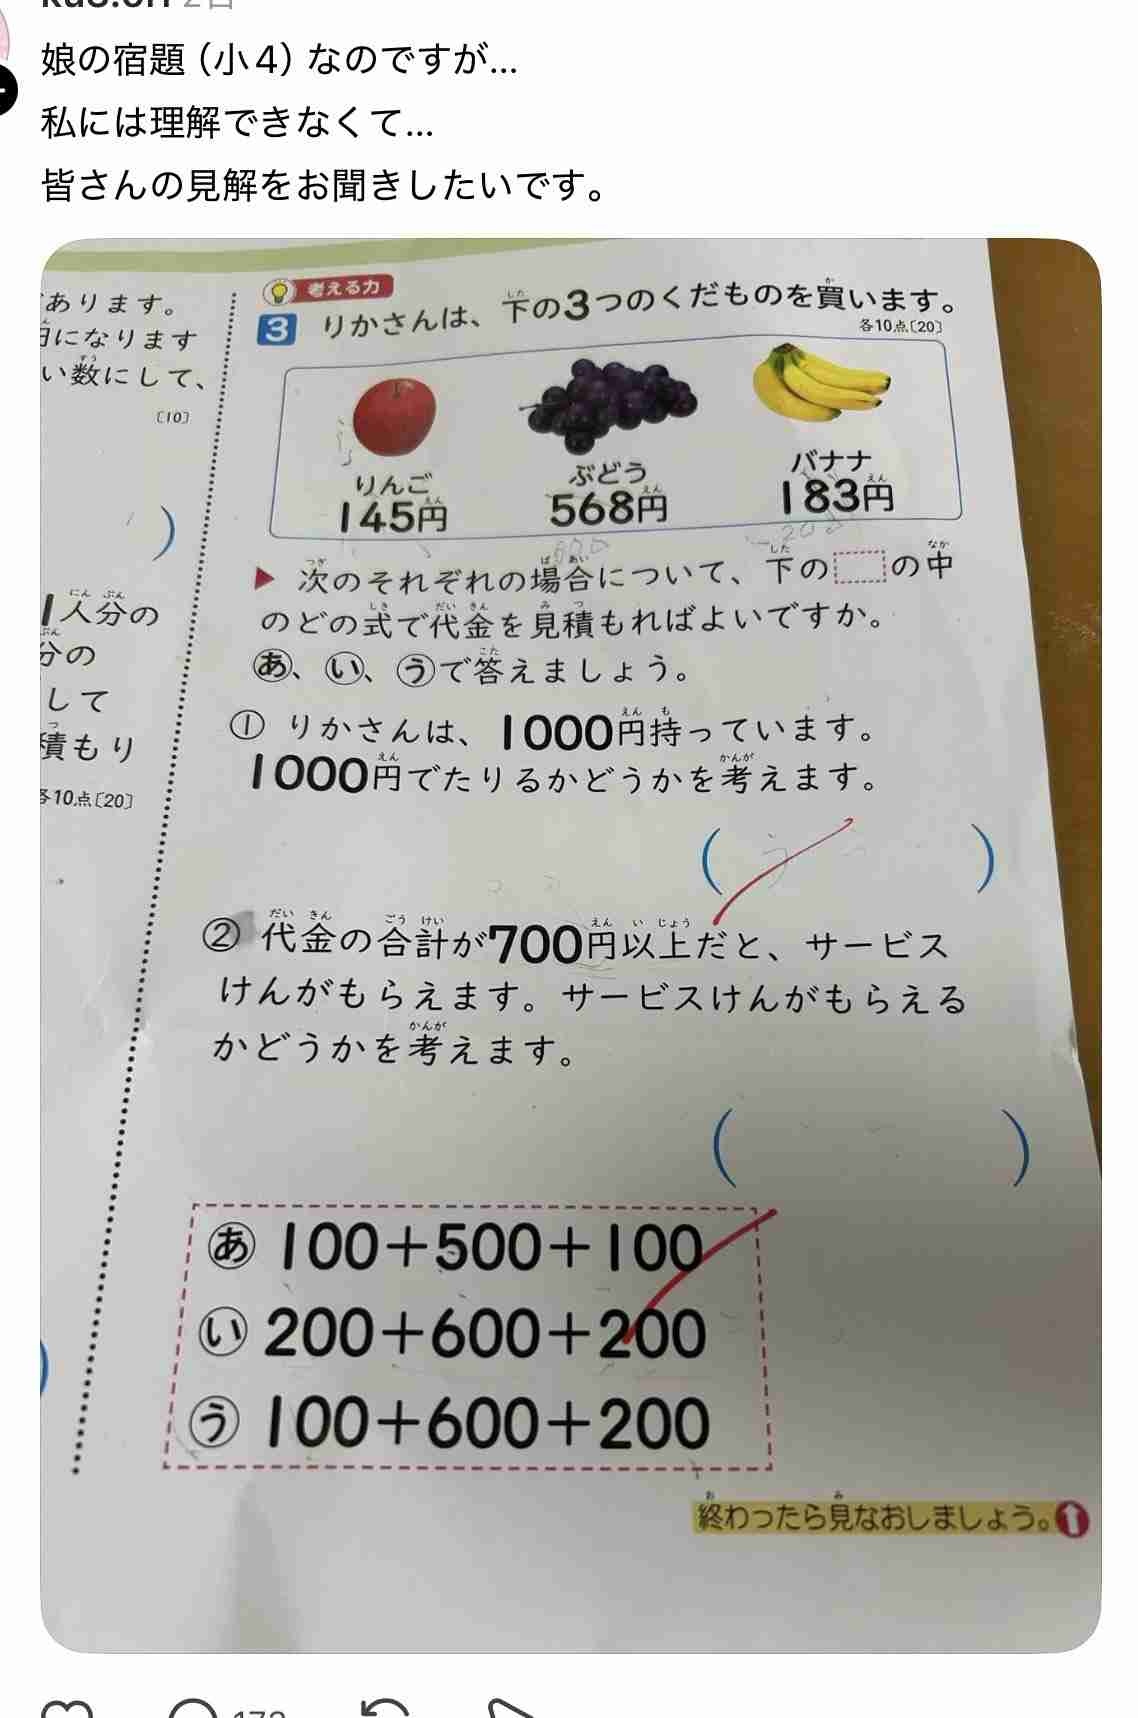 2日
娘の宿題（小4）なのですが…
私には理解できなくて…
皆さんの見解をお聞きしたいです。
あります。
円になります
い数にして、
〔10〕
）
1人分の
分の
して
積もり
各10点〔20〕
考える力
3 りかさんは、下の3つのくだものを買います。
各10点〔20〕
りんご
145円
ぶどう
568円
バナナ
183円
600
200
▶次のそれぞれの場合について、下の□の中
のどの式で代金を見積もればよいですか。
あ、い、うで答えましょう。
① りかさんは、1000円持っています。
1000円でたりるかどうかを考えます。
（ う ）
② 代金の合計が700円以上だと、サービス
けんがもらえます。サービスけんがもらえる
かどうかを考えます。
（ ）
あ 100+500+100
い 200+600+200
う 100+600+200
終わったら見なおしましょう。